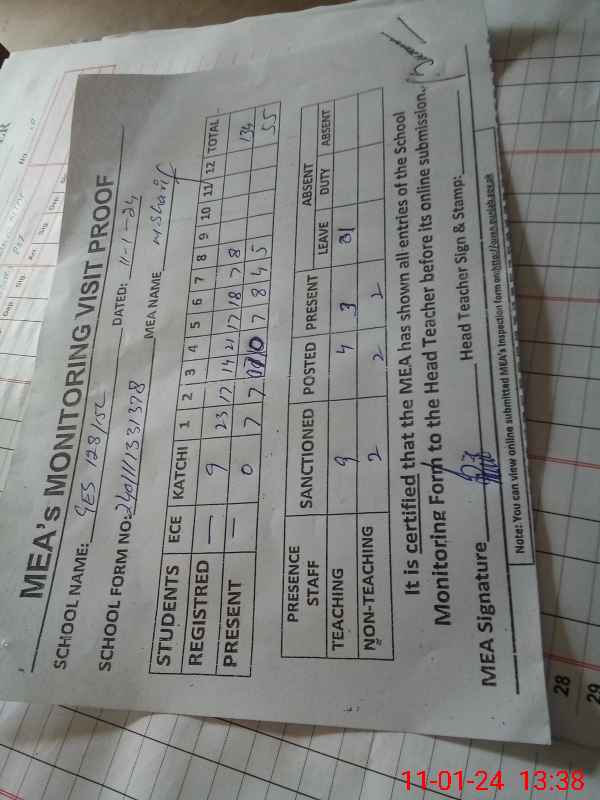 MEA's MONITORING VISIT PROOF
SCHOOL NAME: GES 128/5L DATED: 11-1-24
SCHOOL FORM NO: 2401111331378 MEA NAME
STUDENTS ECE KATCHI 1 2 3 4 5 6 7 8 9 10 11 12 TOTAL
REGISTRED — 9 23 17 14 21 17 18 7 8 134
PRESENT — 0 7 7 10 7 8 4 5 55
PRESENCE STAFF SANCTIONED POSTED PRESENT ABSENT
LEAVE DUTY ABSENT
TEACHING 9 4 3
NON-TEACHING 2 2 2
It is certified that the MEA has shown all entries of the School
Monitoring Form to the Head Teacher before its online submission.
MEA Signature Head Teacher Sign & Stamp:
Note: You can view online submitted MEA's Inspection form on
28
29
11-01-24 13:38